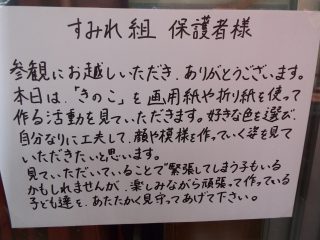 すみれ組 保護者様
参観にお越しいただき、ありがとうございます。
本日は、「きのこ」を画用紙や折り紙を使って
作る活動を見ていただきます。好きな色を選び、
自分なりに工夫して、顔や模様を作っていく姿を見て
いただきたいと思います。
見ていただいていることで緊張してしまう子もいる
かもしれませんが、楽しみながら頑張って作っている
子ども達を、あたたかく見守ってあげて下さい。